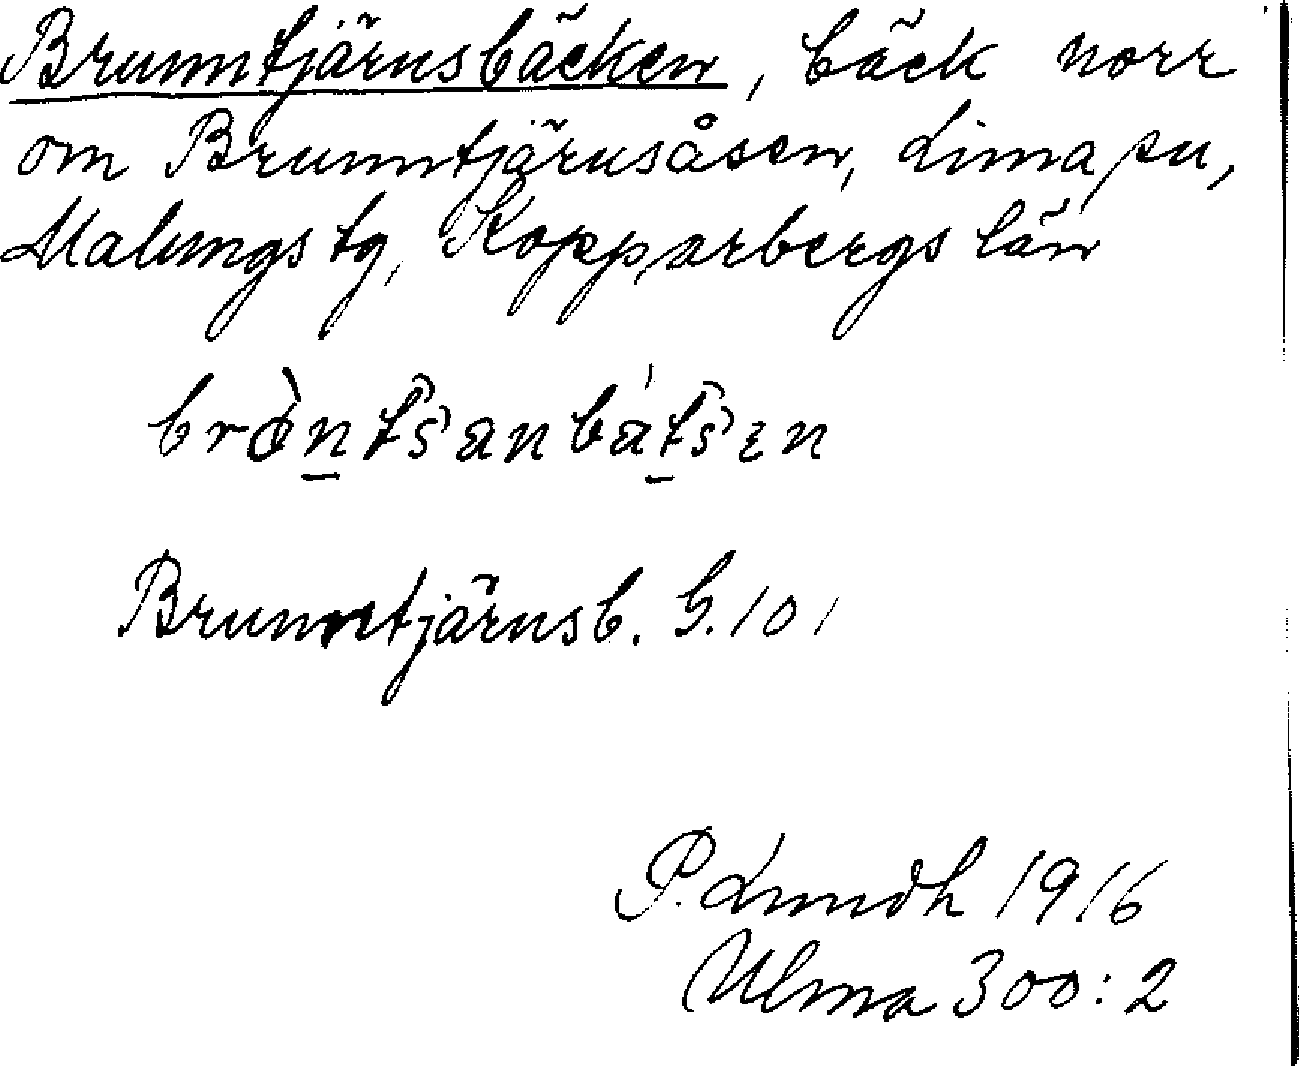 Brunntjärnsbäcken, bäck norr
om Brunntjärnsåsen, Lima sn,
Malungs tg, Kopparbergs län
Brunntjärnsb. G. 101
P. Lundh 1916
Ulma 300:2